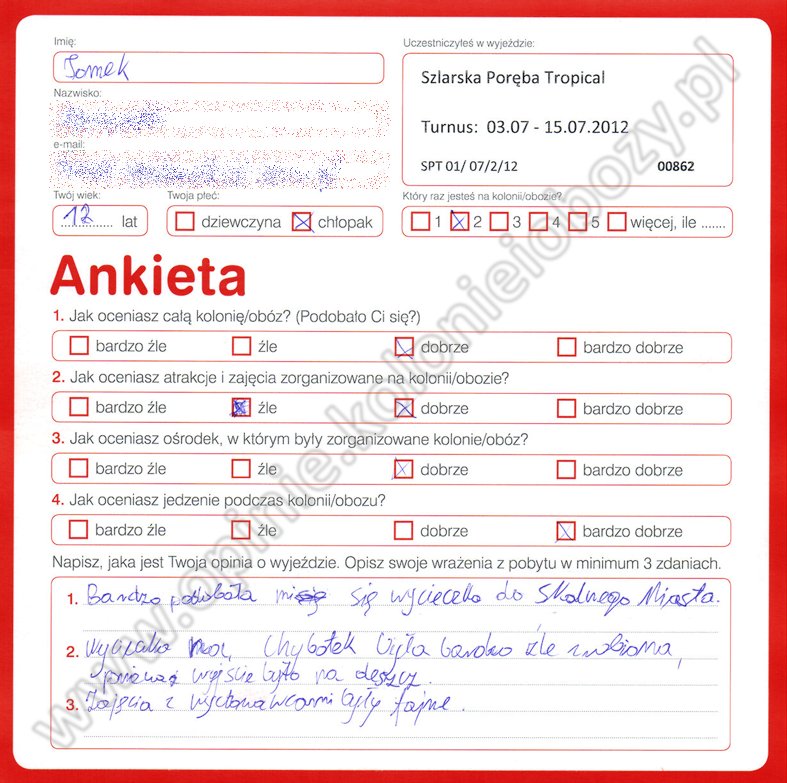 Imię:
Tomek
Uczestniczyłeś w wyjeździe:
Szlarska Poręba Tropical
Turnus: 03.07 - 15.07.2012
SPT 01/ 07/2/12 00862
Nazwisko:
e-mail:
Twój wiek:
12 lat
Twoja płeć:
dziewczyna chłopak
Który raz jesteś na kolonii/obozie?
1 2 3 4 5 więcej, ile .......
Ankieta
1. Jak oceniasz całą kolonię/obóz? (Podobało Ci się?)
bardzo źle źle dobrze bardzo dobrze
2. Jak oceniasz atrakcje i zajęcia zorganizowane na kolonii/obozie?
bardzo źle źle dobrze bardzo dobrze
3. Jak oceniasz ośrodek, w którym były zorganizowane kolonie/obóz?
bardzo źle źle dobrze bardzo dobrze
4. Jak oceniasz jedzenie podczas kolonii/obozu?
bardzo źle źle dobrze bardzo dobrze
Napisz, jaka jest Twoja opinia o wyjeździe. Opisz swoje wrażenia z pobytu w minimum 3 zdaniach.
1. Bardzo podobała mi się wycieczka do Skalnego Miasta.
2. Wycieczka na Chybotek była bardzo źle zrobiona,
ponieważ wyjście było na deszcz.
3. Zajęcia z wychowawcami były fajne.
www.opinie.kolonieiobozy.pl